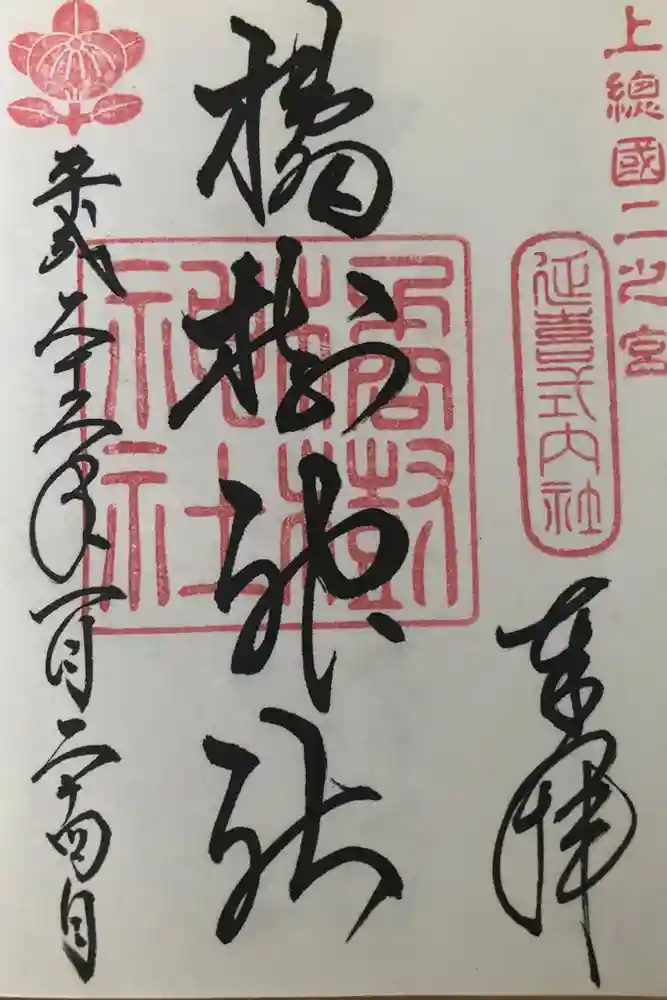 上總國二之宮
延喜式内社
奉拝
橘樹神社
橘樹
神社
平成二十三年一月二十四日